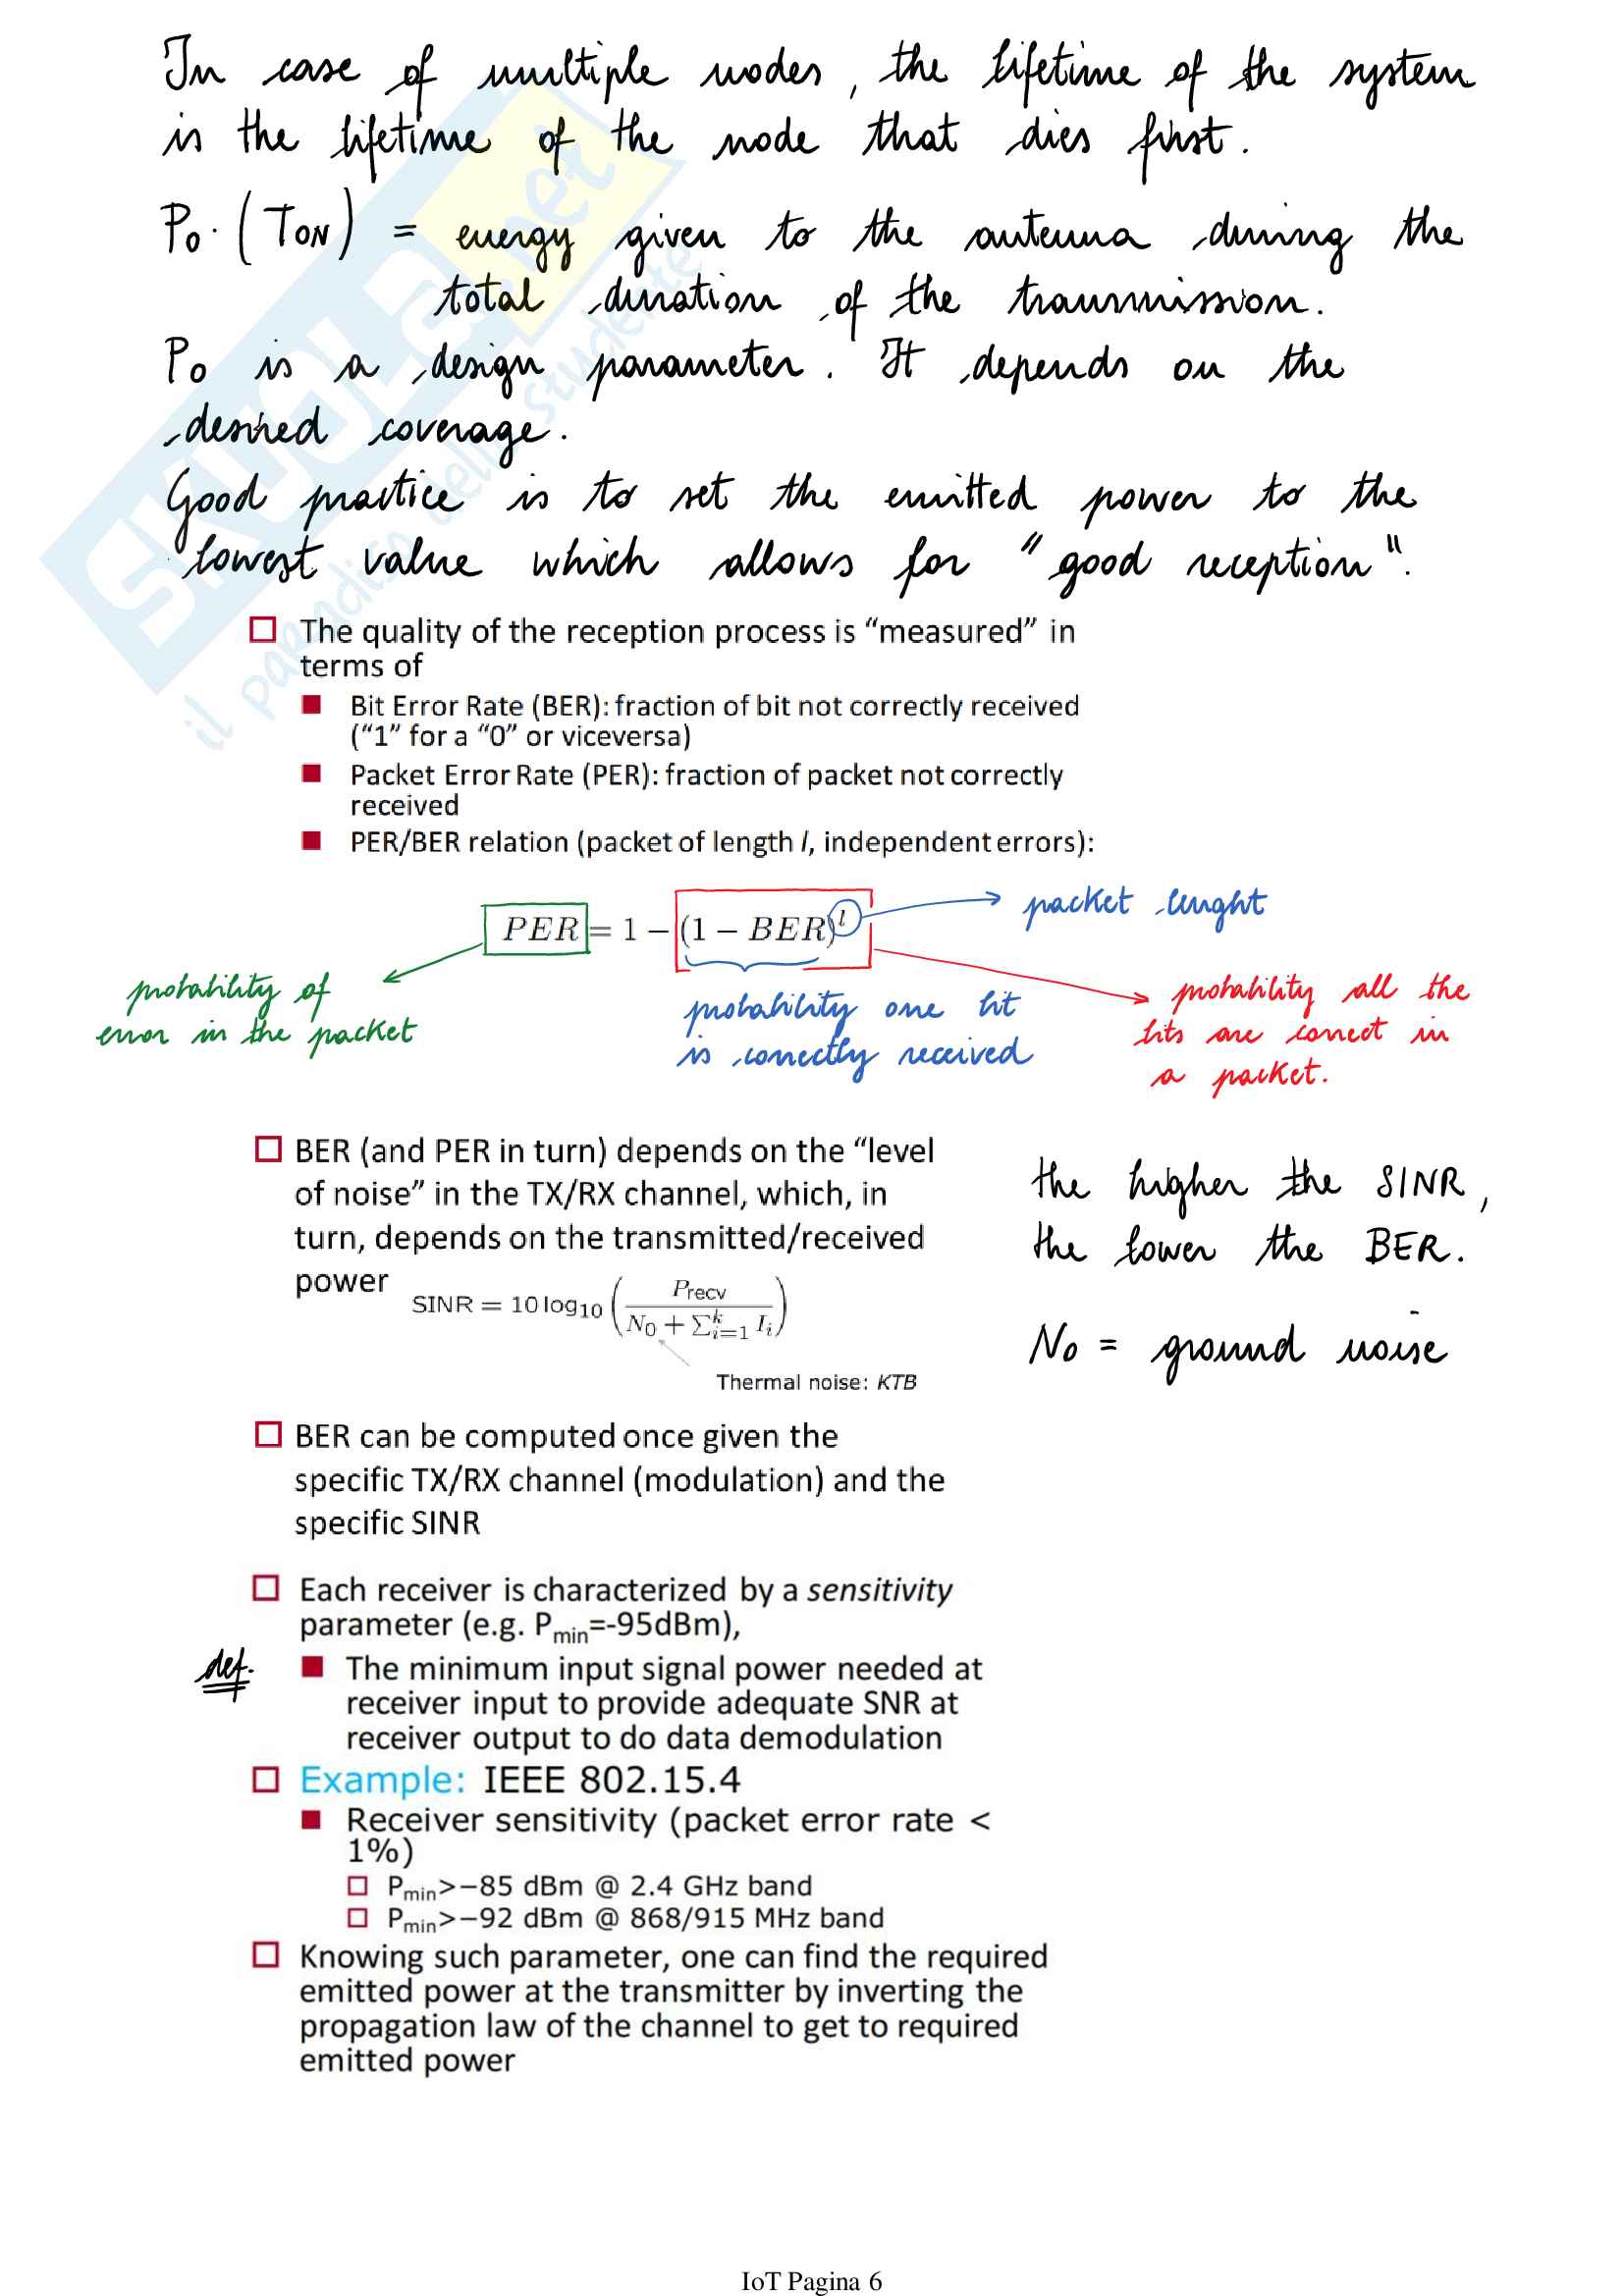 In case of multiple nodes, the lifetime of the system
is the lifetime of the node that dies first.
P0·(TON) = energy given to the antenna during the
total duration of the transmission.
P0 is a design parameter. It depends on the
desired coverage.
Good practice is to set the emitted power to the
lowest value which allows for "good reception".
The quality of the reception process is “measured” in
terms of
Bit Error Rate (BER): fraction of bit not correctly received
(“1” for a “0” or viceversa)
Packet Error Rate (PER): fraction of packet not correctly
received
PER/BER relation (packet of length l, independent errors):
PER = 1 − (1 − BER)^l
packet lenght
probability of
error in the packet
probability one bit
is correctly received
probability all the
bits are correct in
a packet.
BER (and PER in turn) depends on the “level
of noise” in the TX/RX channel, which, in
turn, depends on the transmitted/received
power
SINR = 10 log10 (Precv / (N0 + Σ_{i=1}^k Ii))
Thermal noise: KTB
the higher the SINR,
the lower the BER.
N0 = ground noise
BER can be computed once given the
specific TX/RX channel (modulation) and the
specific SINR
Each receiver is characterized by a sensitivity
parameter (e.g. Pmin=-95dBm),
def.
The minimum input signal power needed at
receiver input to provide adequate SNR at
receiver output to do data demodulation
Example: IEEE 802.15.4
Receiver sensitivity (packet error rate <
1%)
Pmin>−85 dBm @ 2.4 GHz band
Pmin>−92 dBm @ 868/915 MHz band
Knowing such parameter, one can find the required
emitted power at the transmitter by inverting the
propagation law of the channel to get to required
emitted power
SKUOLA.net
il paradiso dello studente
IoT Pagina 6